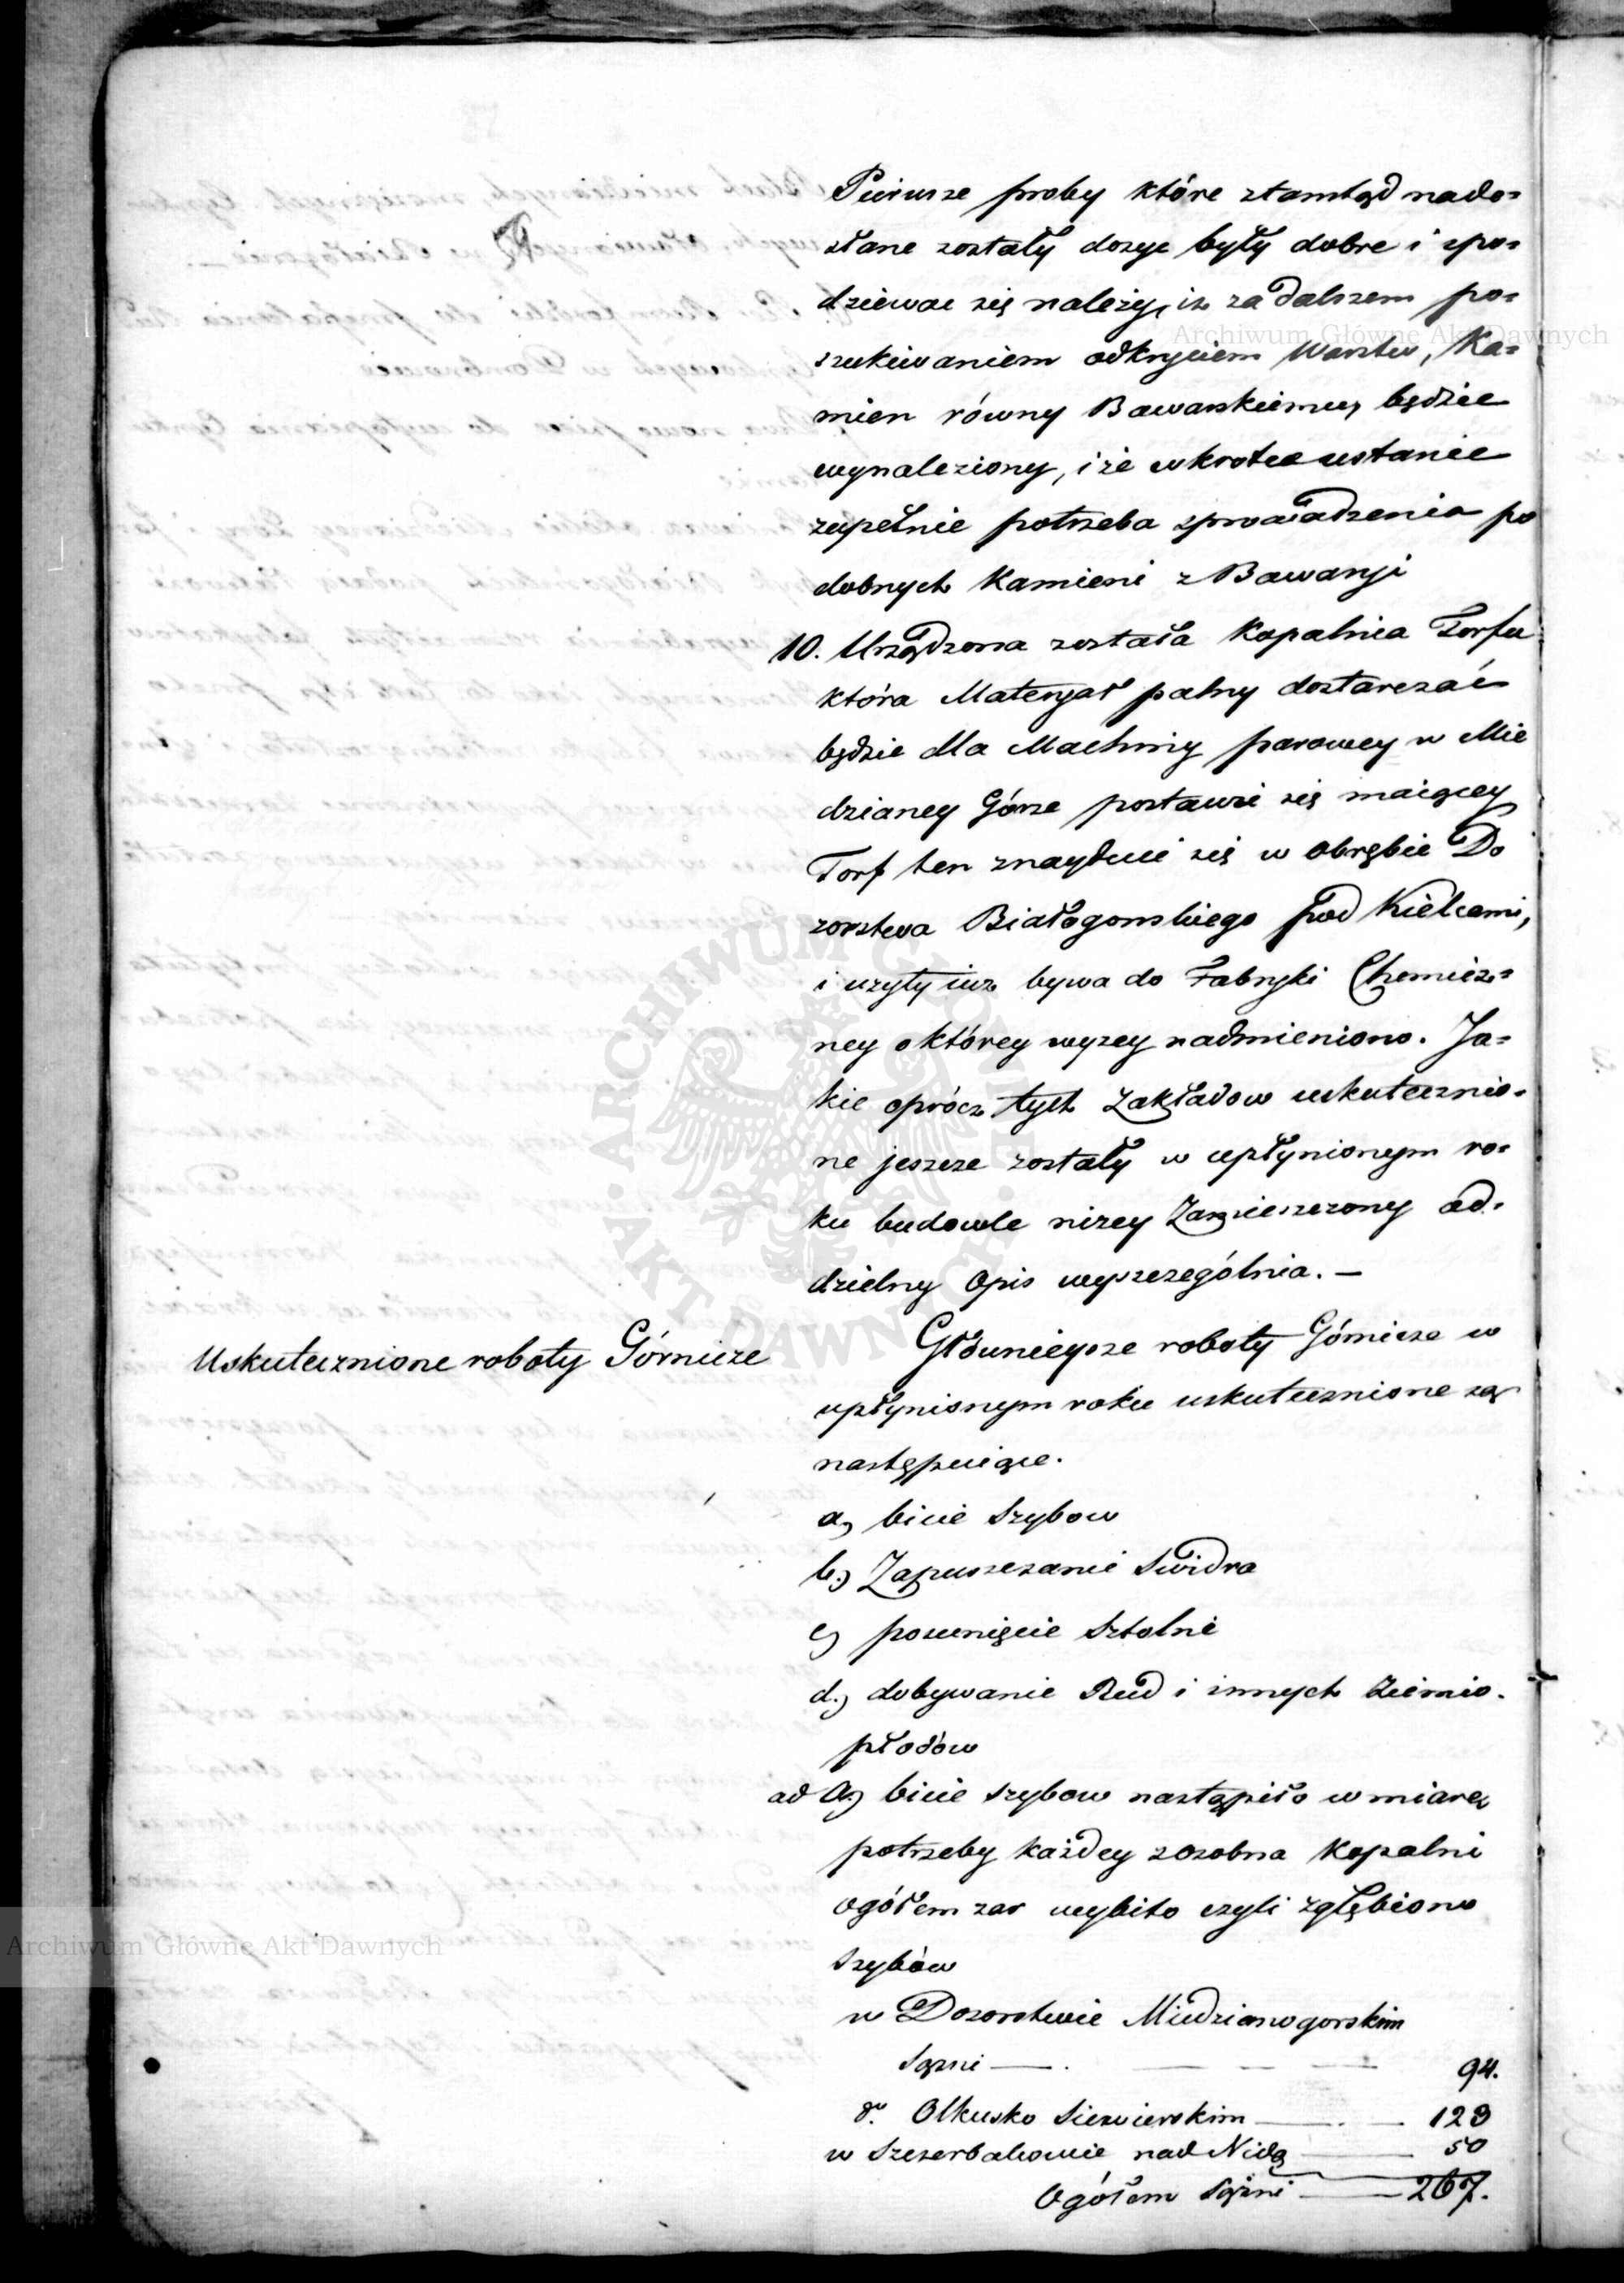 Pierwsze proby które ztamtąd nade=
słane zostały dosyc były dobre i spo=
dziewac się należy, iz za dalszem po=
szukiwaniem odkryciem Warstw, Ka=
mien równy Bawarskiemu, będzie
wynaleziony, i że wkrotce ustanie
zupełnie potrzeba sprowadzenia po
dobnych Kamieni z Bawaryi
10. Urządzona została Kopalnia Torfu
która Materyał palny dostarczać
będzie dla Machiny parowey w Mie
dzianey Górze postawić się maiącey
Torf ten znayduie się w obrębie Do
zorstwa Białogonskiego pod Kielcami,
i uzyty iuz bywa do Fabryki Chemicz=
ney o którey wyzey nadmieniono. Ja=
kie oprócz tych Zakładow uskutecznio=
ne jeszcze zostały w upłynionym ro=
ku budowle nizey Zamieszczony od=
dzielny Opis wyszczególnia. —
Uskutecznione roboty Górnicze
Głównieysze roboty Górnicze w
upłynionym roku uskutecznione są
następuiące.
a, bicie Szybow
b.) Zapuszczanie Swidra
c) posunięcie Sztolni
d.) dobywanie Rud i innych Ziemio=
płodów
ad a.) bicie szybow nastąpiło w miarę
potrzeby każdey zosobna Kopalni
ogółem zas wybito czyli zgłębiono
Szybów
w Dozorstwie Miedzianogorskim
Sązni — 94.
do. Olkusko Siewierskim — 123
w Szczerbakowie nad Nidą — 50
Ogółem Sążni — 267.
Archiwum Główne Akt Dawnych
Archiwum Główne Akt Dawnych
ARCHIWUM GŁÓWNE · AKT DAWNYCH ·